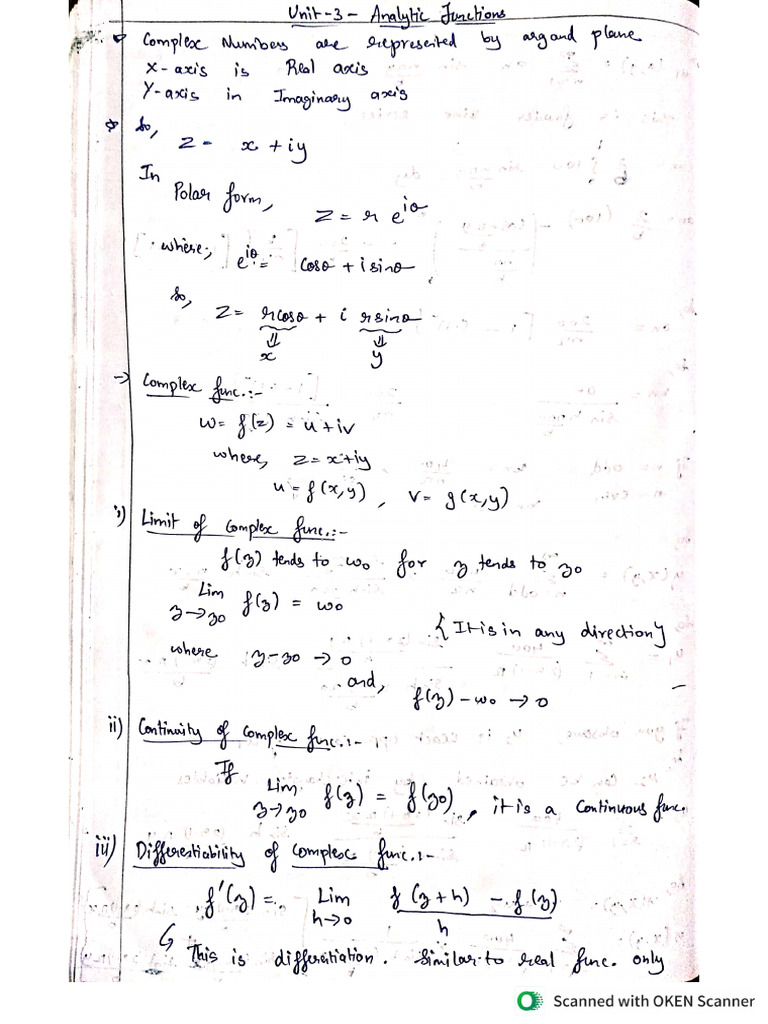 Unit-3 - Analytic Functions
Complex Numbers are represented by argand plane
X-axis is Real axis
Y-axis in Imaginary axis
So,
z = x + iy
In
Polar form,
z = r e^{iθ}
where;
e^{iθ} = cosθ + i sinθ
So,
z = rcosθ + i rsinθ
⇓ ⇓
x y
→ Complex func.:-
w = f(z) = u + iv
where, z = x+iy
u = f(x,y), v = g(x,y)
i) Limit of complex func.:-
f(z) tends to w₀ for z tends to z₀
Lim f(z) = w₀
z→z₀
{It is in any direction}
where z-z₀ → 0
and,
f(z) - w₀ → 0
ii) Continuity of complex func.:-
If
Lim f(z) = f(z₀), it is a continuous func.
z→z₀
iii) Differentiability of complex func.:-
f'(z) = Lim f(z+h) - f(z)
h→0 h
↳ This is differentiation. Similar to real func. only
Scanned with OKEN Scanner